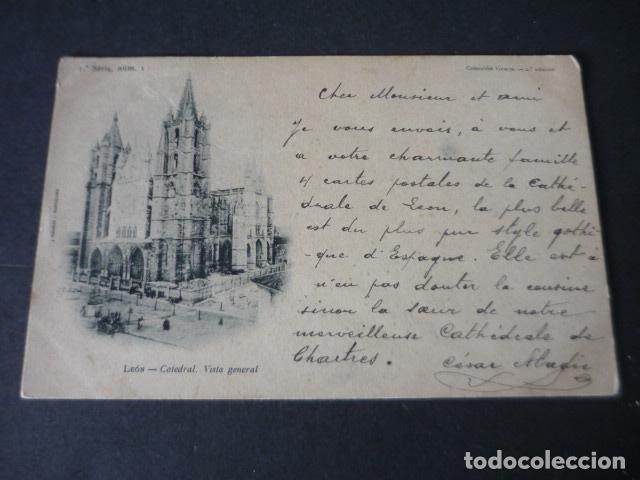 1.ª Série, núm. 1
Colección Gracia. — 2.ª edición
Cher Monsieur et ami
Je vous envois, à vous et
a votre charmante famille
4 cartes postales de la Cathé-
drale de Leon, la plus belle
est du plus pur style gothi-
que d'Espagne. Elle est à
n'en pas douter la cousine
sinon la sœur de notre
merveilleuse Cathédrale de
Chartres.
César
LEÓN — Catedral. Vista general
todocoleccion.net